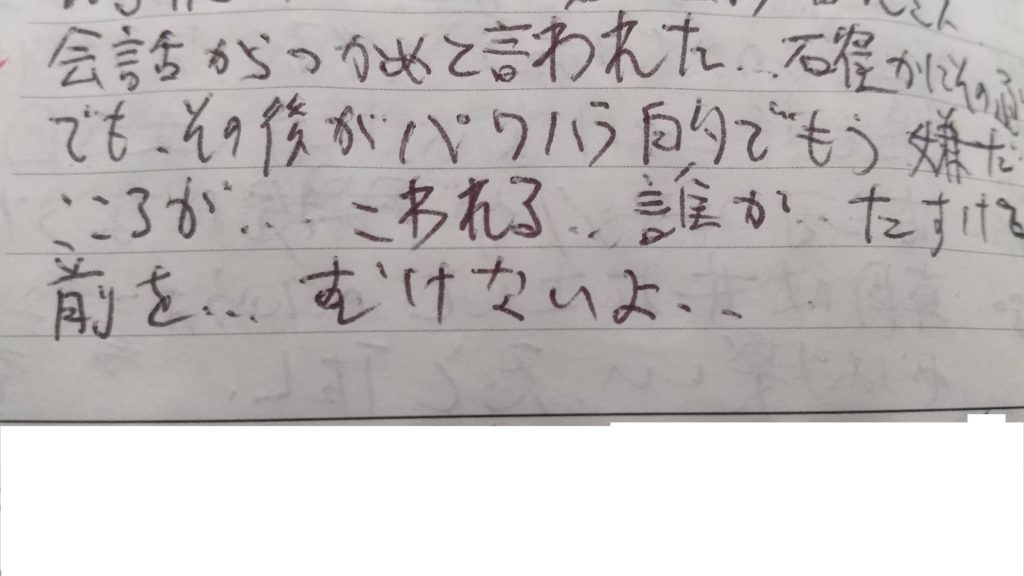 会話からつかめと言われた…確かにその
でも、その後がパワハラ的でもう嫌だ
こころが… こわれる… 誰か… たすける
前を… むけないよ、、